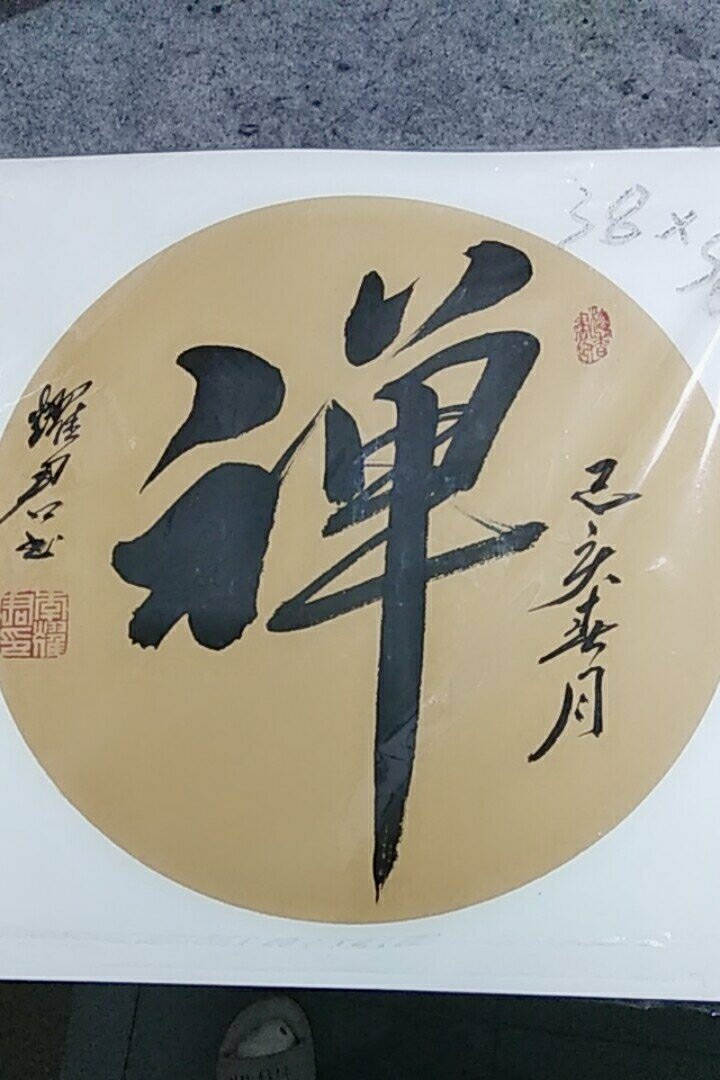 禅
己亥春月
耀君书
38×